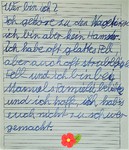 Wer bin ich?
Ich gehöre zu den Nagetieren
ich bin aber kein Hamster.
Ich habe oft glattes Fell
aber auch oft strubbliges
Fell und ich bin bei
Manuel
und ich hoffe ich habe
euch nicht zu schwer
gemacht.